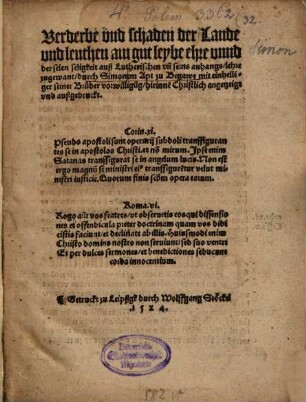 4° Polem 3362
32.
Simon
Verderbe vnd schaden der Lande
vnd leuthen am gut leybe ehre vnnd
der selen seligkeit auß Lutherischen vñ seins anhangs lehre
zugewant/ durch Simonem Apt zu Begawe mit einhelli-
ger seiner Brüder vorwilligũg/ hirinne Christlich angetzeigt
vnd außgedruckt.
Corin. xi.
Pseudo apostoli sunt operarij subdoli transfiguran
tes se in apostolos Christi. et nõ mirum. Ipse enim
Satanas transfigurat se in angelum lucis. Non est
ergo magnũ si ministri ei⁹ transfigurẽtur velut mi-
nistri iusticie. Quorum finis scďm opera eorum.
Roma. vi.
Rogo aũt vos fratres, vt obseruetis eos qui dissensio
nes et offendicula preter doctrinam quam vos didi
cistis faciunt: et declinate ab illis. Huiusmodi enim
Christo domino nostro non seruiunt/ sed suo ventri
Et per dulces sermones/ et benedictiones seducunt
corda innocentium.
¶ Getruckt zu Leipßgk durch Wolffgang Stöckel
1524.